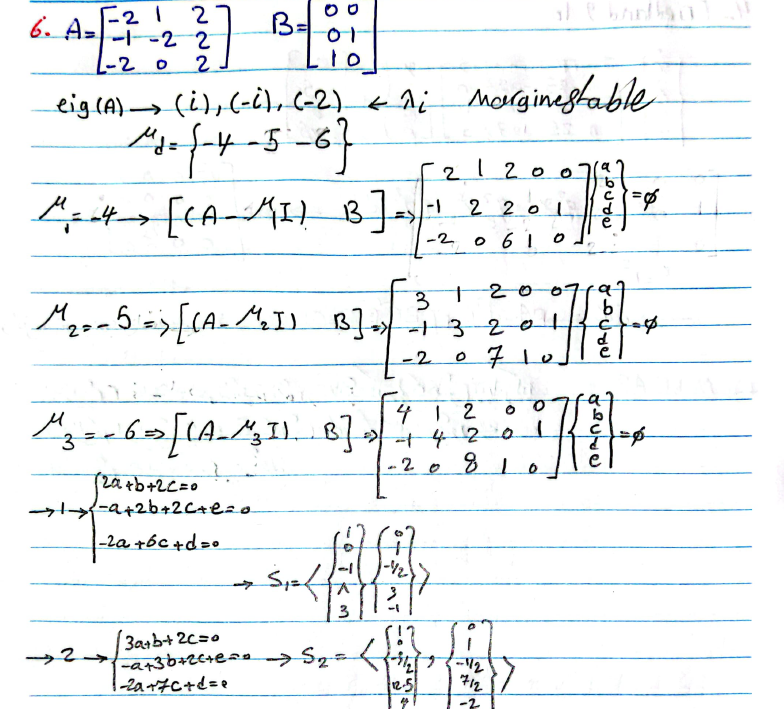 6. A=[-2 1 2; -1 -2 2; -2 0 2] B=[0 0; 0 1; 1 0]
eig(A) → (i), (-i), (-2) ← λi Marginestable
μd = {-4 -5 -6}
μ1 = -4 → [(A-μ1I) B] => [2 1 2 0 0; -1 2 2 0 1; -2 0 6 1 0] {a b c d e} = ø
μ2 = -5 => [(A-μ2I) B] => [3 1 2 0 0; -1 3 2 0 1; -2 0 7 1 0] {a b c d e} = ø
μ3 = -6 => [(A-μ3I) B] => [4 1 2 0 0; -1 4 2 0 1; -2 0 8 1 0] {a b c d e} = ø
→ 1 → {2a+b+2c=0
-a+2b+2c+e=0
-2a+6c+d=0
→ S1 = < {1 0 -1 ۸ 3} {0 1 -1/2 3 -1} >
→ 2 → {3a+b+2c=0
-a+3b+2c+e=0 → S2 = < {1 0 -3/2 12.5 4}, {0 1 -1/2 7/2 -2} >
-2a+7c+d=0